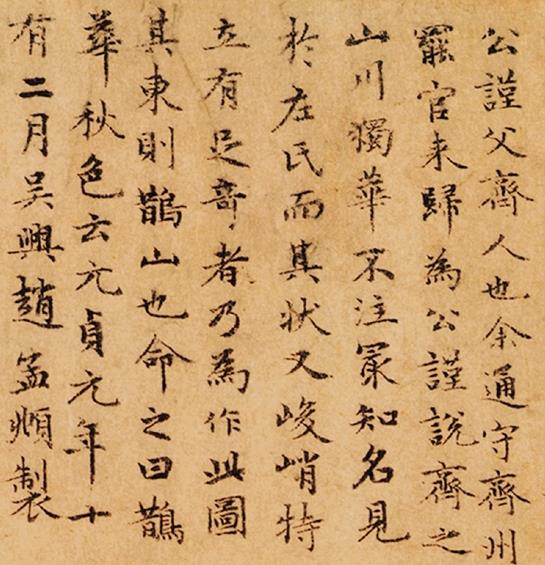 公謹父齊人也余通守齊州
罷官来歸為公謹說齊之
山川獨華不注冣知名見
於左氏而其状又峻峭特
立有足奇者乃為作此圖
其東則鵲山也命之曰鵲
華秋色云元貞元年十
有二月吴興趙孟頫製